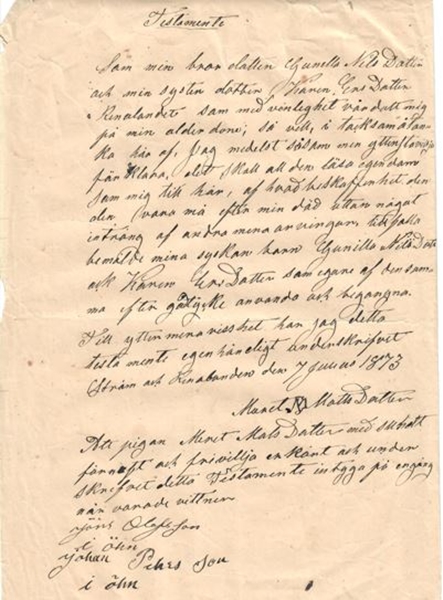 Testamente
Som min bror datter Gunilla Nils Datter
och min syster dotter Karen Ers Datter
som med vänlighet vårdatt mig
på min ålderdom, så vill, i tacksam åtan-
ka här af, Jag medelst såsom min yttersta vilja
förklara, det skall all den lösa egendom
som mig till hör, af hvad beskaffenhet den
den vara må efter min död uttan något
intrång af andra mina arvingar, tillfalla
bemälde mina syskon barn Gunilla Nils Datter
och Karen Ers Datter som egare af den sam-
ma efter godtycke använda och begagna.
Till yttermera visshet har jag detta
testamente egenhändeligt underskrifvet
Ström och den 7 Junius 1873
Meret Mats Datter
Att pigan Meret Mats Datter med sundt
förnuft och frivillja erkänt och under
skrifvet detta Testamente på engång
när varande vittnen
Jöns Olofsson
i öhn
Johan Pehrs Son
i öhn